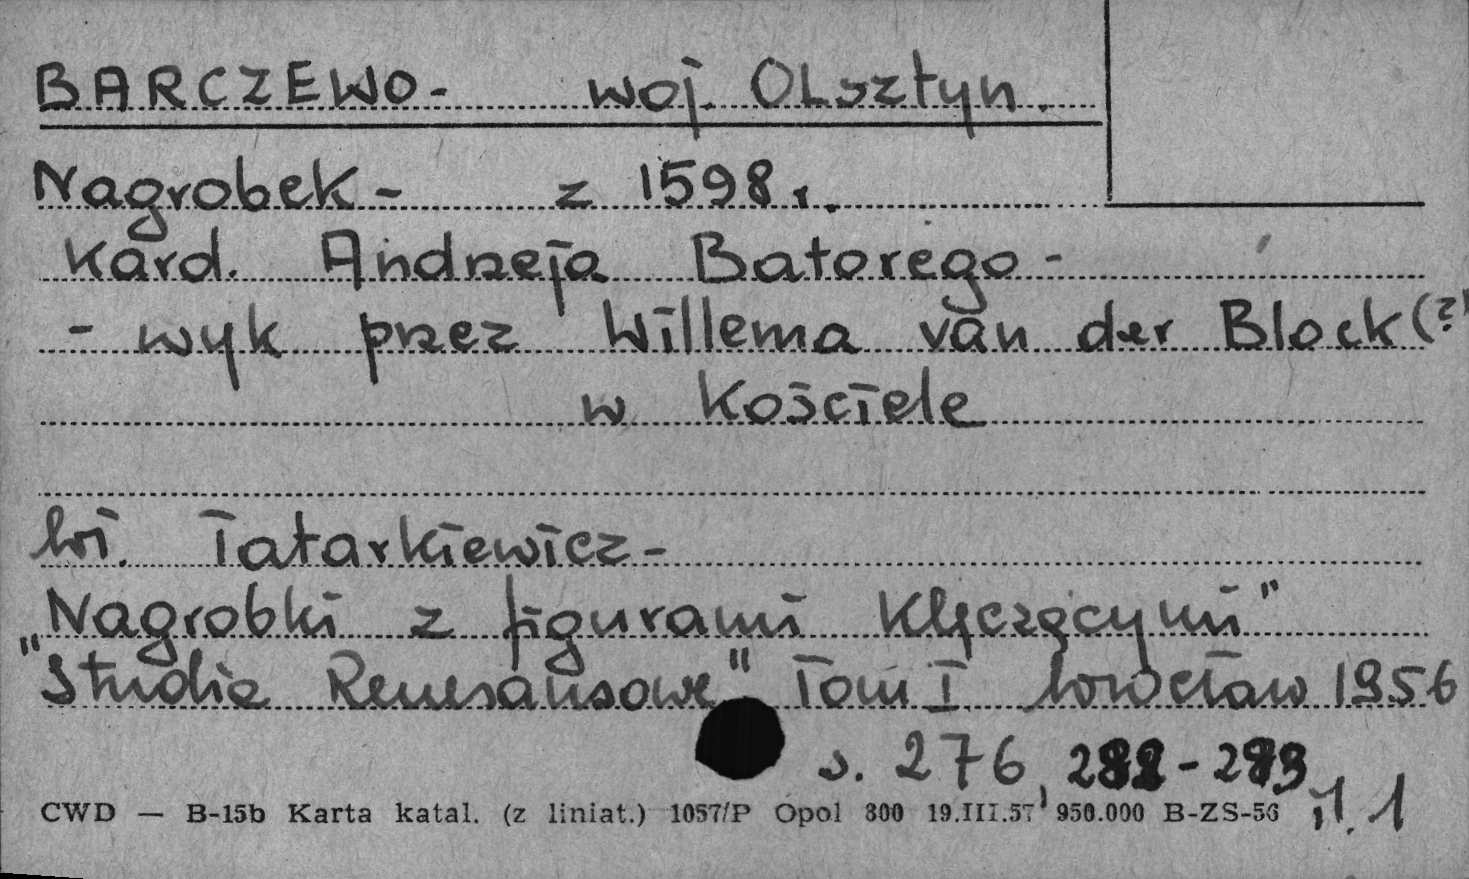 BARCZEWO - woj. Olsztyn.
Nagrobek - z 1598 r.
Kard. Andrzeja Batorego -
- wyk przez Willema van der Block (?)
w Kościele
Wł. Tatarkiewicz -
"Nagrobki z figurami klęczącymi"
"Studia Renesansowe" Tom I. Wrocław 1956
s. 276, 282-283, il. 1
CWD — B-15b Karta katal. (z liniat.) 1057/P Opol 300 19.III.57 950.000 B-ZS-56